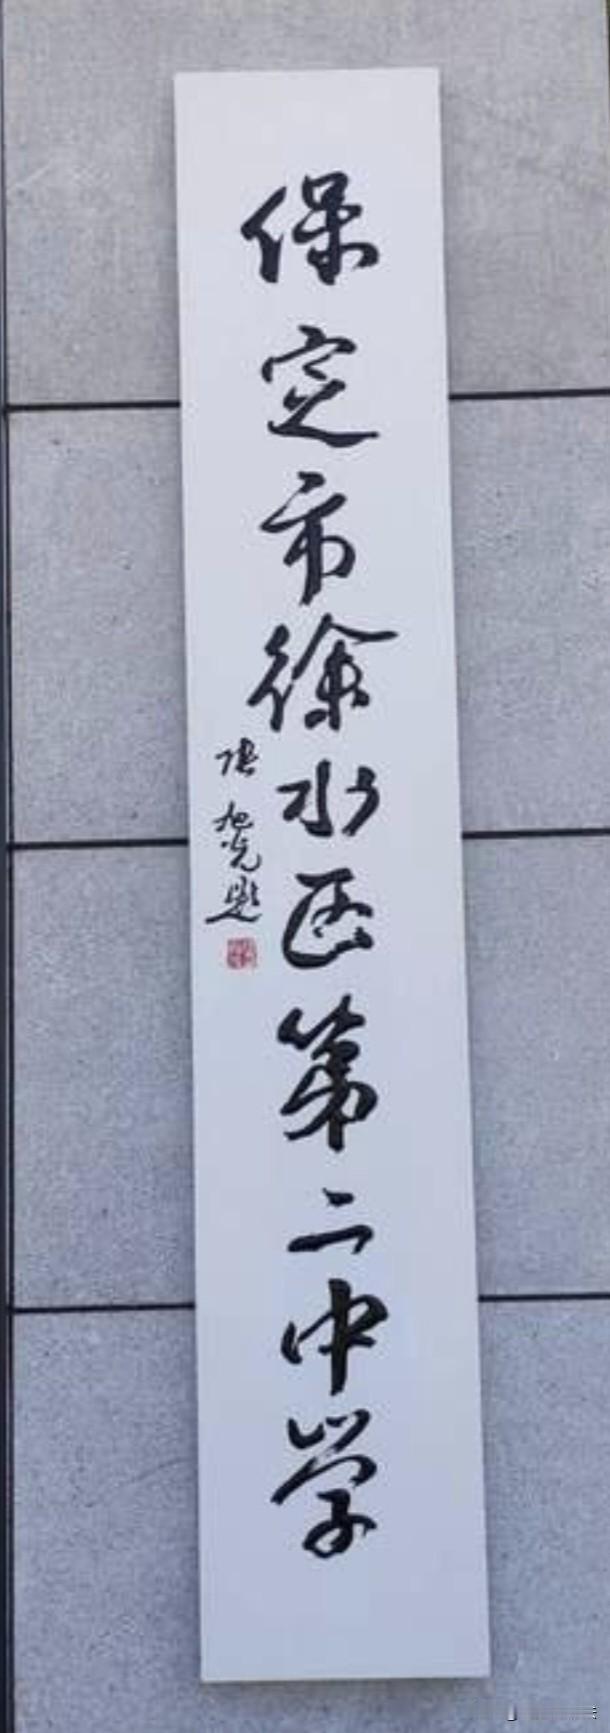 保定市徐水区第二中学
张旭光题